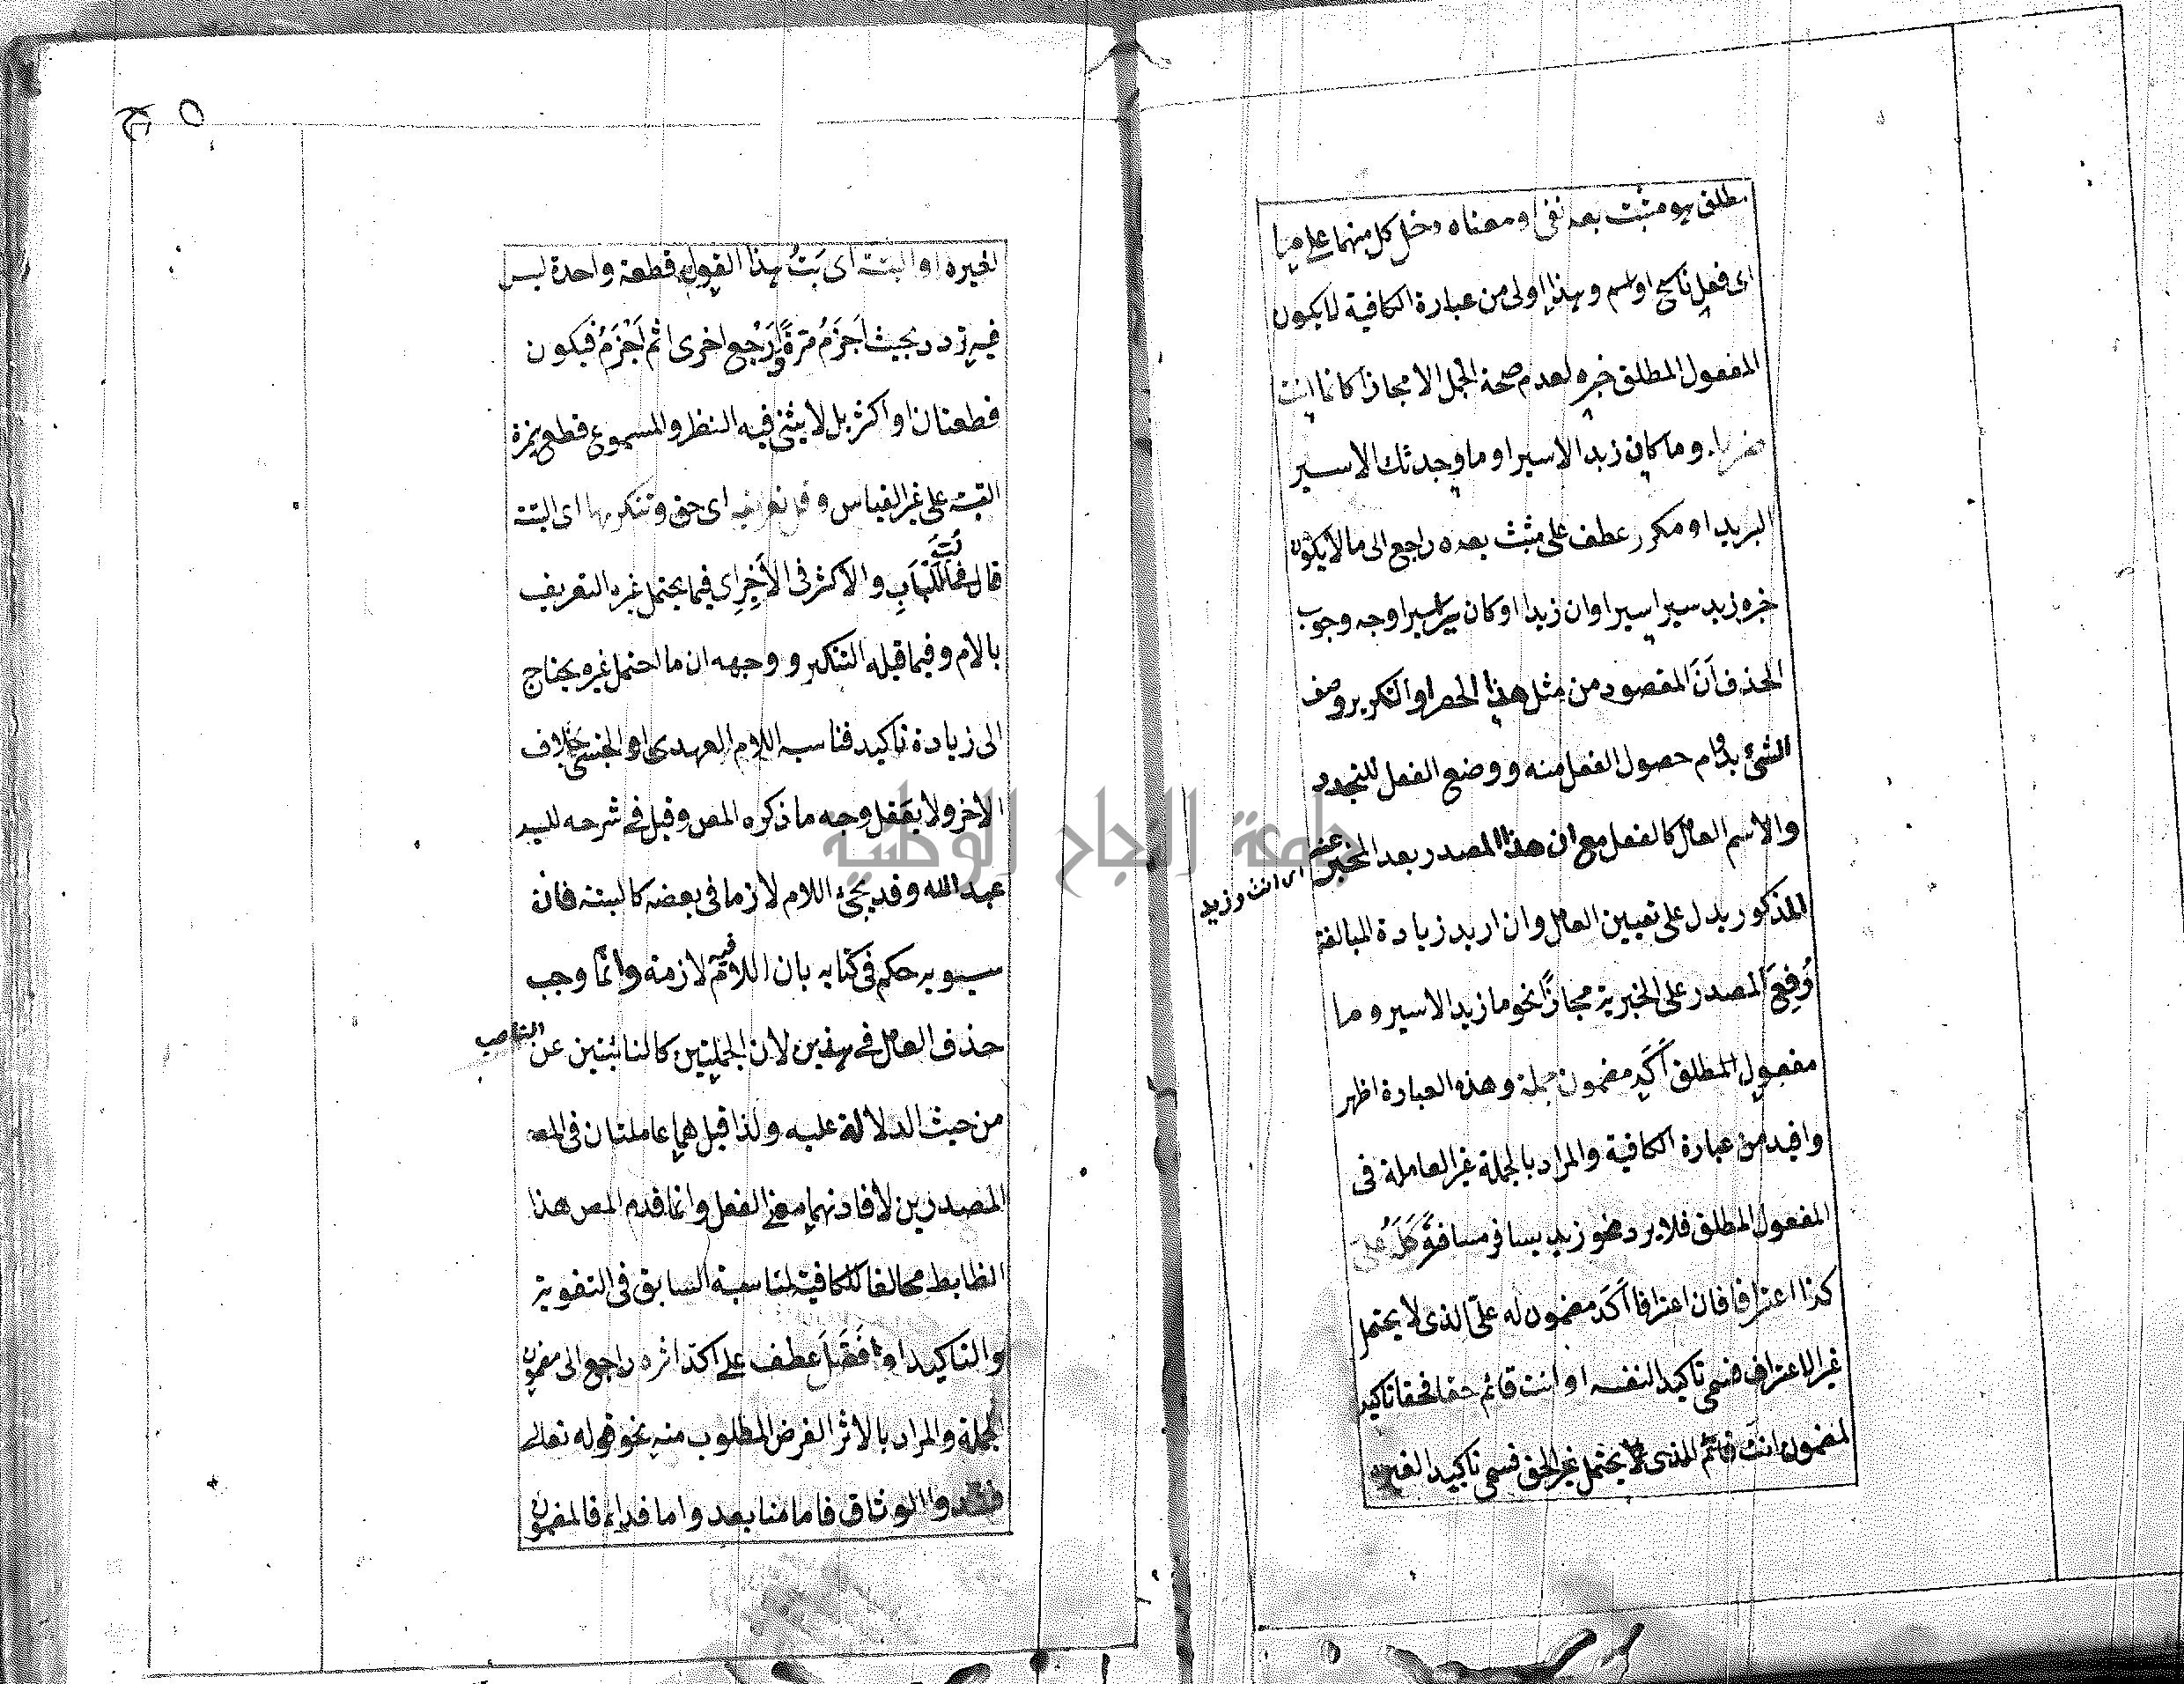 مطلق هو مثبت بعد نفى او معناه دخل كل منهما على
اى فعل ناسخ او اسم وهذا اولى من عبارة الكافية لا يكون
المفعول المطلق خبره لعدم صحة الحمل الا مجازا كانما انت
وما كان زيد الا سيرا وما وجدتك الا سير
البريد او مكرر عطف على مثبت بعده راجع الى ما لا يكون
خبره زيد سيرا سيرا وان زيدا او كان سيرا سيرا وجه وجوب
الحذف أنَّ المقصود من مثل هذا الحصر او التكرير وصف
الشئ بدوام حصول الفعل منه ووضع الفعل للتجدد
والاسم العامل كالفعل مع ان هذا المصدر بعد المخبر عنه
اى انت وزيد
المذكور يدل على تعيين العامل وان اريد زيادة المبالغة
رُفِعَ المصدر على الخبرية مجازًا نحو ما زيد الا سير وما
مفعول المطلق أكَّد مضمون جملة وهذه العبارة اظهر
وافيد من عبارة الكافية والمراد بالجملة غير العاملة فى
المفعول المطلق فلا يرد نحو زيد يسافر مسافرةً
كذا اعترافا فان اعترافا أكّد مضمون له علىّ الذى لا يحتمل
غير الاعتراف فسمى تاكيد النفسه او انت قائم حقا فحقا تاكيد
لمضمون انت قائم الذى لا يحتمل غير الحق فسمى تاكيد الغيره
٥
لغيره او البتة اى بَتُّ هذا القول قطعة واحدة ليس
فيه تردد بحيث اَجْزَمُ مرةً وأَرْجِع اخرى ثم اَجْزَمُ فيكون
قطعتان او اكثر بل لا يثنى فيه النظر والمسموع قطع همزة
البتة على غير القياس وقل تعريفه اى حق وتنكيرها اى البتة
قال فى اللُّبَابِ والاكثر فى الأخير اى فيما يحتمل غيره التعريف
بالام وفيما قبله التنكير ووجهه ان ما احتمل غيره يحتاج
الى زيادة تاكيد فناسبه اللام العهدى او الجنسى بخلاف
الاخر ولا يعقل وجه ما ذكره المص وقيل فى شرحه للسيد
عبد الله وقد يجئ اللام لازما فى بعضه كالبتة فان
سيبويه حكم فى كتابه بان اللام فيه لازمة وانما وجب
حذف العامل فى هذين لان الجملتين كالنائبتين عن الناصب
من حيث الدلالة عليه ولذا قيل هما عاملتان فى
المصدرين لافادتهما معنى الفعل وانما قدم المص هذا
الظابط مخالفا للكافية لمناسبة السابق فى التقوية
والتاكيد او فَصَّلَ عطف على اكد اثره راجع الى مضمون
الجملة والمراد بالاثر الغرض المطلوب منه نحو قوله تعالى
فشدوا الوثاق فاما منا بعد واما فداء فالمضمون
جامعة النجاح الوطنية